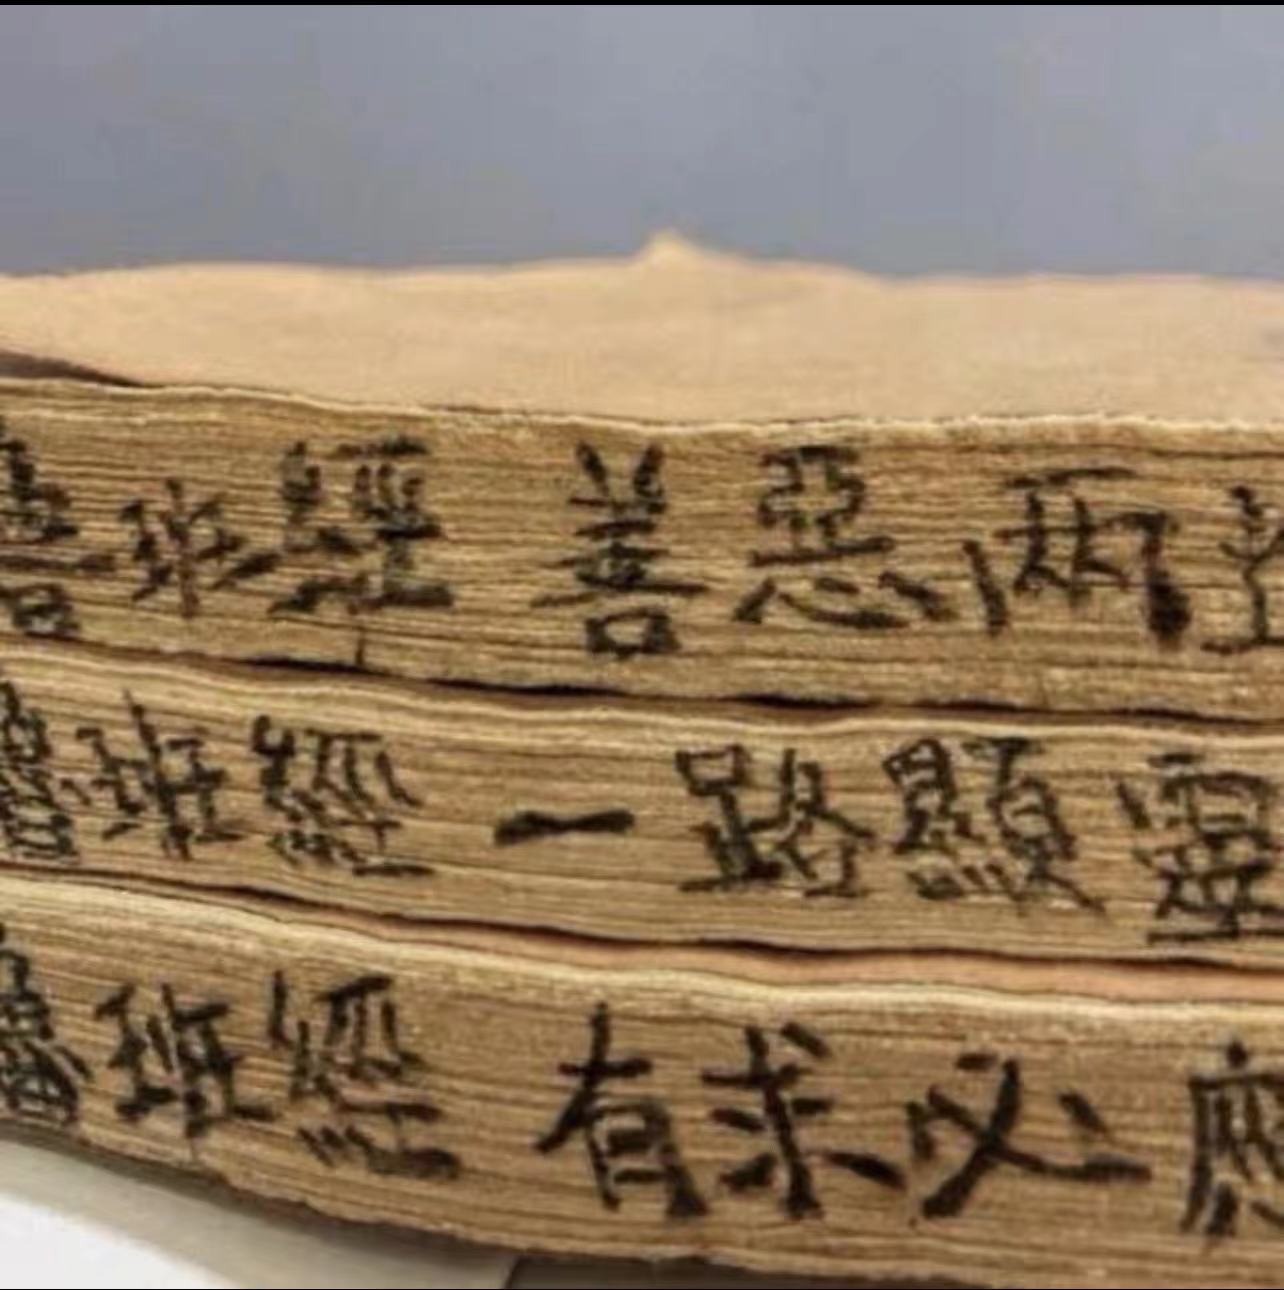 魯班經 善惡兩
魯班經 一路顯靈
魯班經 有求必應